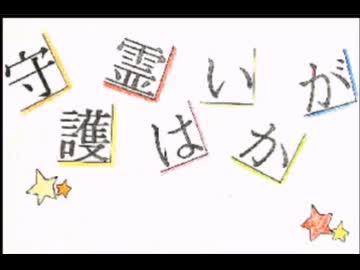 守護霊はいかが